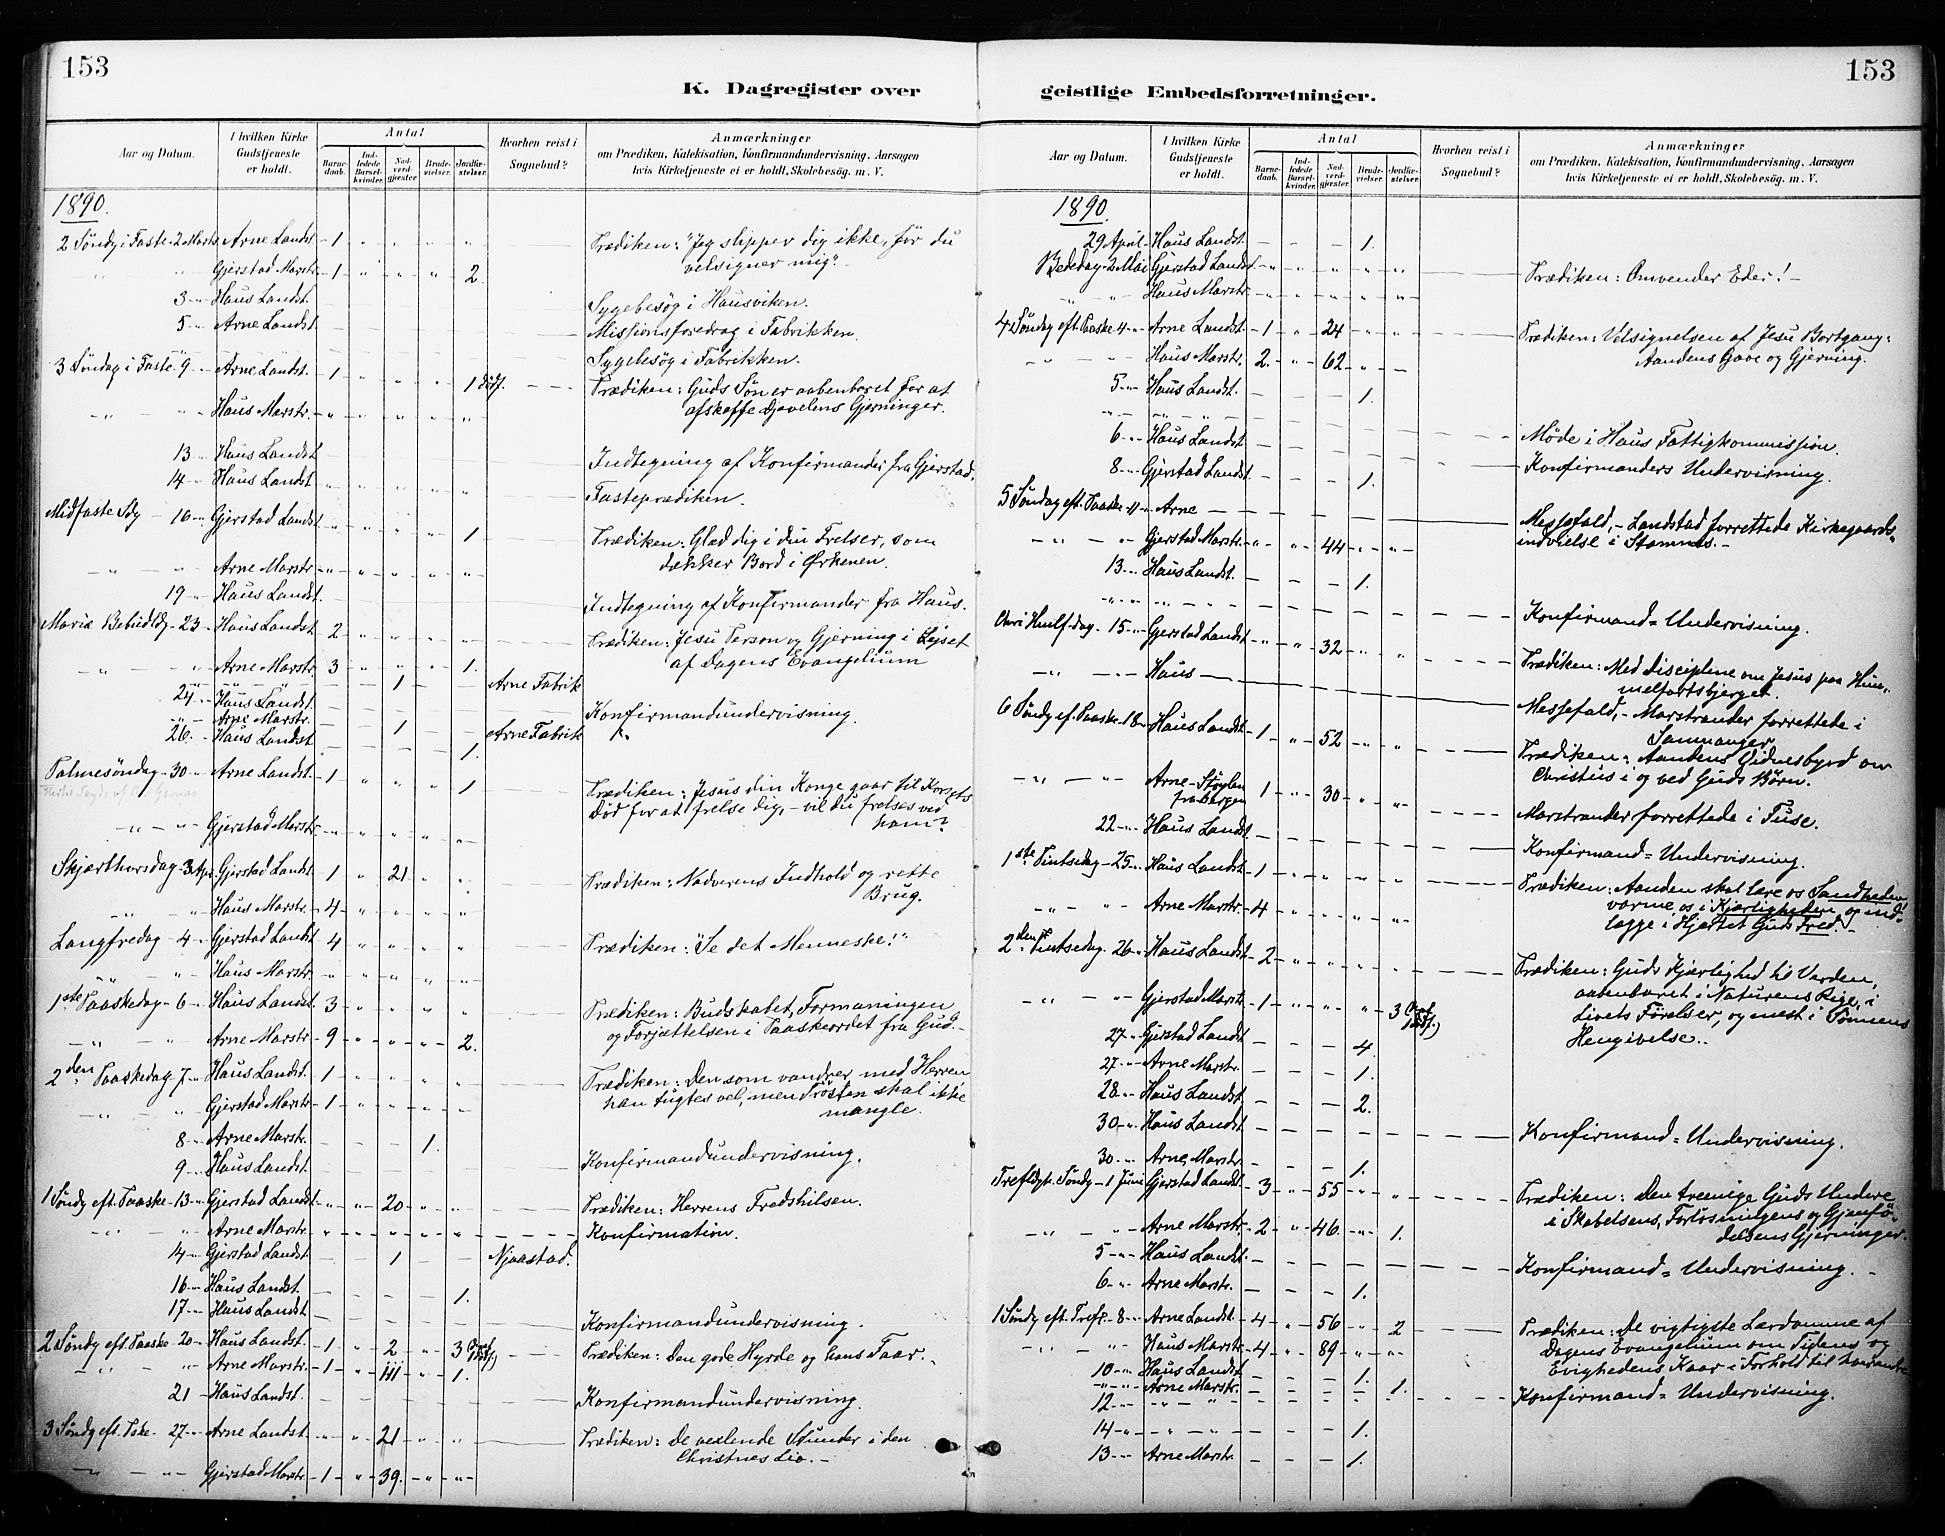 153
K. Dagregister over
Aar og Datum.
I hvilken Kirke Gudstjeneste er holdt.
Antal
Barne-daab.
Ind-ledede Barsel-kvinder.
Nad-verd-gjester
Brude-vielser.
Jordfæ-stelser.
Hvorhen reist i Sognebud?
Anmærkninger
om Prædiken, Katekisation, Konfirmandundervisning, Aarsagen
hvis Kirketjeneste ei er holdt, Skolebesøg. m. V.
1890.
2 Søndg i Faste - 2 Marts Arne Landst. 1 " " " " Prædiken: "Jeg slipper dig ikke, før du
velsigner mig".
" " Gjerstad Marstr. 1 " " " 2.
3 " Haus Landst. Sygebesøg i Hausviken.
5 " Arne Landst. Missionsforedrag i Fabrikken.
Sygebesøg i Fabrikken.
3 Søndag i Faste 9 " Arne Landst. 1 " " " 1 Prædiken: Guds Søn er aabenbaret for at
afskaffe Djævelens Gjerninger.
" " Haus Marstr. " " " " "
13 " Haus Landst. Indtegning af Konfirmander fra Gjerstad.
14 " Haus Landst. " " " " " Fasteprædiken.
Midfaste Sdg - 16 " Gjerstad Landst. " " " " 1. Prædiken: Glæd dig i din Frelser, som
dækker Bord i Ørkenen.
" " Arne Marstr. " " " " "
19 " Haus Landst. Indtegning af Konfirmander fra Haus.
Mariæ Bebudldg - 23 " Haus Landst. 2 " " " " Prædiken: Jesu Person og Gjerning i Lyset
af Dagens Evangelium
" " Arne Marstr. 3 " " " 1.
" " " 1 Arne Fabrik
24 " Haus Landst. Konfirmandundervisning.
" " Arne Marstr. 1 Arne Fabrik
26 " Haus Landst. 1.
Palmesøndag - 30 " Arne Landst. 1 " " " 1 Prædiken: Jesus din Konge gaar til Korsets
Død for at frelse dig, - vil du frelses ved
ham?
" " Gjerstad Marstr. " " " " "
Skjærthorsdag - 3 Apr. Gjerstad Landst. 1 " 21 " " Prædiken: Nadverens Indhold og rette
Brug.
" " Haus Marstr. 4 " " " "
Langfredag - 4 " Gjerstad Landst. 4 " " " " Prædiken: "Se det Menneske!"
" " Haus Marstr. " " " " "
1ste Paaskedag - 6 " Haus Landst. 3 " " " " Prædiken: Budskabet, Formaningen
og Forjættelsen i Paaskeordet fra Gud.
" " Arne Marstr. 9 " " " 2.
2den Paaskedag 7 " Haus Landst. 1 " " " " Prædiken: Den som vandrer med Herren
han tugtes vel, men Trøsten skal ikke
mangle.
" " Gjerstad Marstr. 1 " " " "
8 " Arne Marstr. 1.
9 " Haus Landst. Konfirmandundervisning.
1 Søndg eft. Paaske - 13 " Gjerstad Landst. " " 20 " " Prædiken: Herrens Fredshilsen.
" " Arne Marstr. " " " " " Konfirmation.
14 " Gjerstad Landst. 1 Njaastad.
16 " Haus Landst. 1.
17 " Haus Landst. Konfirmandundervisning.
2 Søndg eft. Paaske - 20 " Haus Landst. 1 " 2 " 3 Prædiken: Den gode Hyrde og hans Faar.
" " Arne Marstr. 1 " 111 " 1.
21 " Haus Landst. Konfirmandundervisning.
3 Søndg eft. Pske - 27 " Arne Landst. " " 21 " " Prædiken: De vexlende Stunder i den
Christnes Liv.
" " Gjerstad Marstr. 1 " 39. " "
153
geistlige Embedsforretninger.
Aar og Datum.
I hvilken Kirke Gudstjeneste er holdt.
Antal
Barne-daab.
Ind-ledede Barsel-kvinder.
Nad-verd-gjester
Brude-vielser.
Jordfæ-stelser.
Hvorhen reist i Sognebud?
Anmærkninger
om Prædiken, Katekisation, Konfirmandundervisning, Aarsagen
hvis Kirketjeneste ei er holdt, Skolebesøg. m. V.
1890.
29 April Haus Landst. 1.
Bededag - 2 Mai Gjerstad Landst. " " " " " Prædiken: Omvender Eder!
" " Haus Marstr. " " " " "
4 Søndag eft. Paaske 4 " Arne Landst. 1 " 24 " " Prædiken: Velsignelsen af Jesu Bortgang:
Aandens Gave og Gjerning.
" " Haus Marstr. 2. " 62 "
5 " Haus Landst. 1.
" " "
6 " Haus Landst. Møde i Haus Fattigkommission.
8 " Gjerstad Landst. 1. Konfirmanders Undervisning.
5 Søndag eft. Paaske 11 " Arne Messefald, - Landstad forrettede Kirkegaards-
indvielse i Stamnes.
" " Gjerstad Marstr. " " 44 " "
13 " Haus Landst. 1.
" " " Konfirmand = Undervisning.
Chri Himlf.dag - 15 " Gjerstad Landst. " " 32 " " Prædiken: Med Disciplene om Jesus paa Him-
melfartsbjerget.
" " Haus Messefald, - Marstrander forrettede i
Samnanger
6 Søndg ef. Paaske - 18 " Haus Landst. 1 " 52 " " Prædiken: Aandens Vidnesbyrd om
Christus i og ved Guds Børn.
" " Arne - Støylen
fra Bergen 1 " 30 " " Marstrander forrettede i Fuse.
22 " Haus Landst. Konfirmand = Undervisning.
1ste Pintsedag - 25 " Haus Landst. 1 " " " " Prædiken: Aanden skal lære os Sandheden
varme os i Kjærligheden og ned-
lægge i Hjertet Guds Fred.
" " Arne Marstr. 4 " " " "
2den Pintsedag - 26 " Haus Landst. 2 " " " " Prædiken: Guds Kjærlighed til Verden,
aabenbaret i Naturens Rige, i
Livets Førelser, og mest i Sønnens
Hengivelse.
" " Gjerstad Marstr. 1 " " " 3
27 " Gjerstad Landst. 4.
27 " Arne Marstr. 1.
28 " Haus Landst. 2.
30 " Haus Landst. Konfirmand = Undervisning.
30 " Arne Marstr. 1.
Trefldgh. Søndg - 1 Juni Gjerstad Landst. 3 " 55 " " Prædiken: Den treenige Guds Undere
i Skabelsens, Forløsningens og Gjenfø-
delsens Gjerninger.
" " Arne Marstr. 2 " 46. " 1.
5 " Haus Landst. Konfirmand = Undervisning.
6 " Arne Marstr. 1.
1 Søndg eft. Tref. - 8 " Arne Landst. 4 " 56 " 2 Prædiken: De vigtigste Lærdomme af
Dagens Evangelium om Tidens og
Evighedens Kaar i Forhold til hverandre
" " Haus Marstr. 4 " 89 " "
10 " Haus Landst. 1.
" " Arne Marstr. 1.
12 " " " Konfirmand = Undervisning.
14 " " " 1.
13 " Arne Marstr. 1.